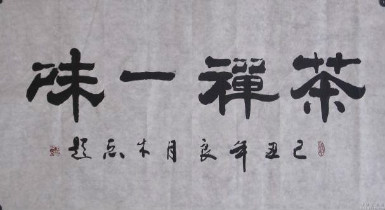 茶禪一味
己丑年良月木点題